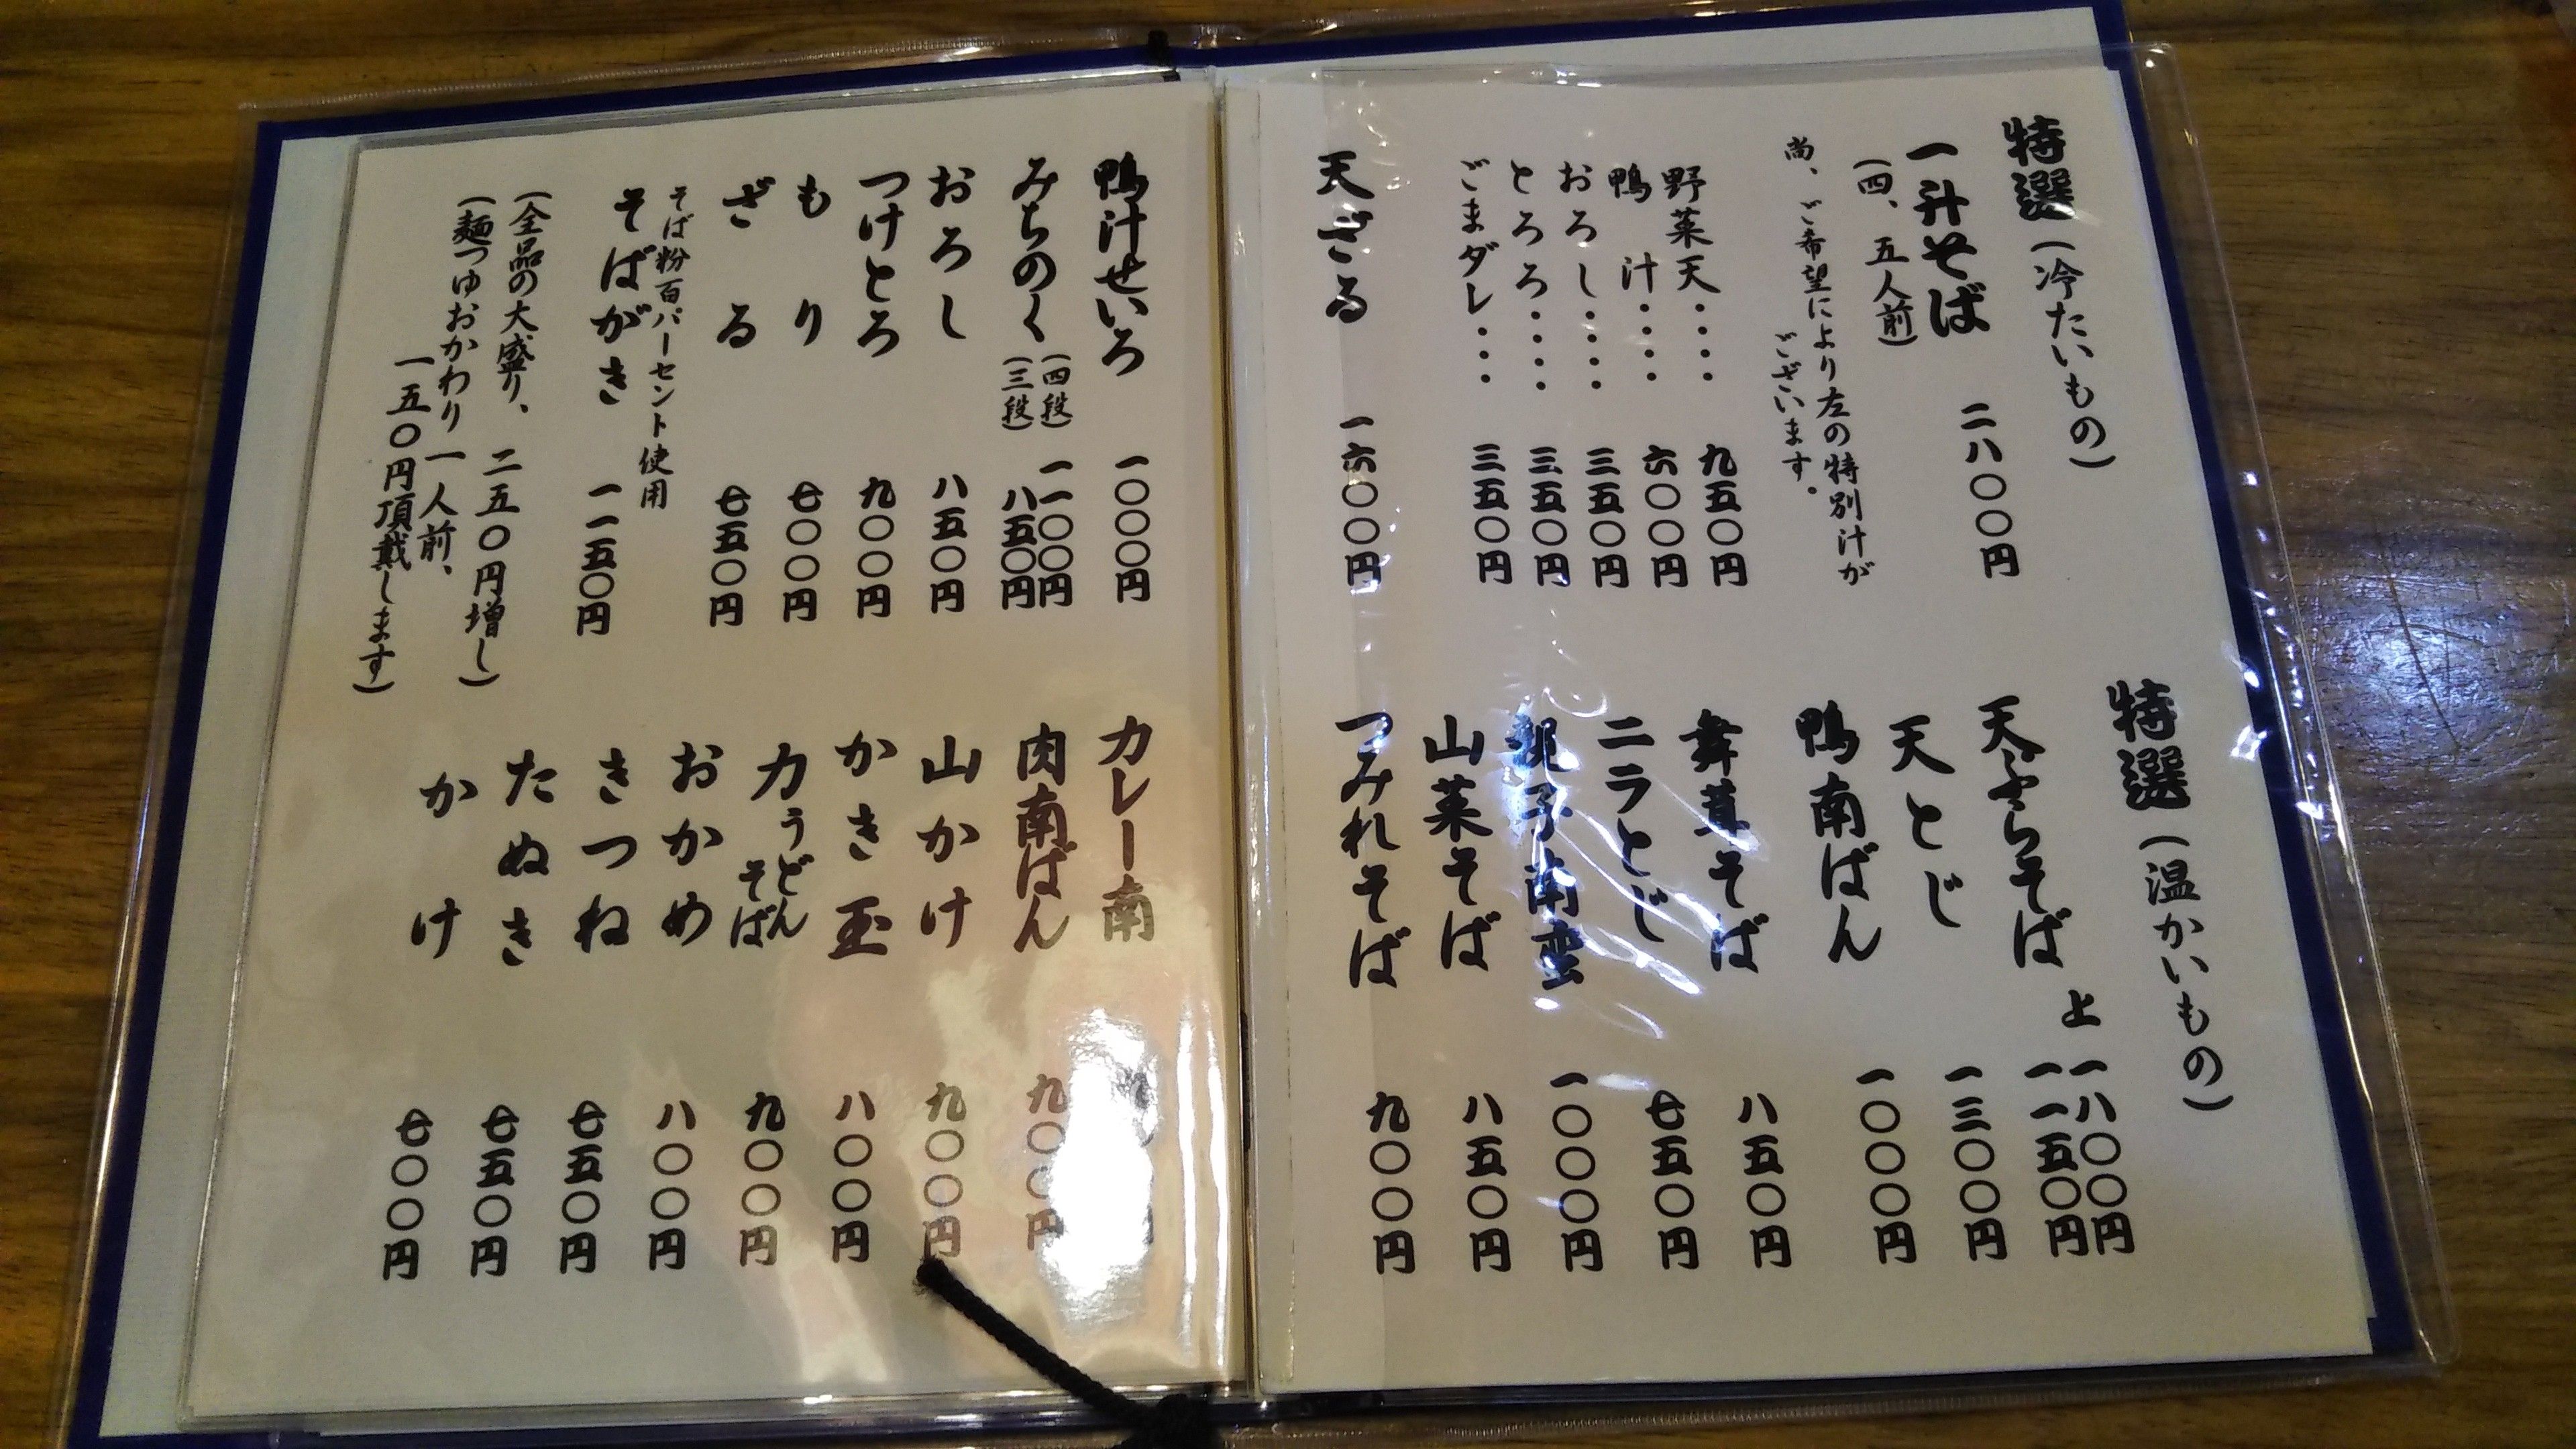 特選(冷たいもの)
一升そば 二八〇〇円
(四、五人前)
尚、ご希望により左の特別汁が
ございます。
野菜天・・・・ 九五〇円
鴨汁・・・・ 六〇〇円
おろし・・・・ 三五〇円
とろろ・・・・ 三五〇円
ごまダレ・・・ 三五〇円
天ざる 一六〇〇円
特選(温かいもの)
天ぷらそば 上 一八〇〇円
一一五〇円
天とじ 一三〇〇円
鴨南ばん 一〇〇〇円
舞茸そば 八五〇円
ニラとじ 七五〇円
親子南蛮 一〇〇〇円
山菜そば 八五〇円
つみれそば 九〇〇円
鴨汁せいろ 一〇〇〇円
みちのく (四段) 一一〇〇円
(三段) 八五〇円
おろし 八五〇円
つけとろ 九〇〇円
もり 七〇〇円
ざる 七五〇円
そば粉百パーセント使用
そばがき 一一五〇円
(全品の大盛り、二五〇円増し)
(麺つゆおかわり一人前、
一五〇円頂戴します)
カレー南
肉南ばん 九〇〇円
山かけ 九〇〇円
かき玉 八〇〇円
力うどん
そば 九〇〇円
おかめ 八〇〇円
きつね 七五〇円
たぬき 七五〇円
かけ 七〇〇円